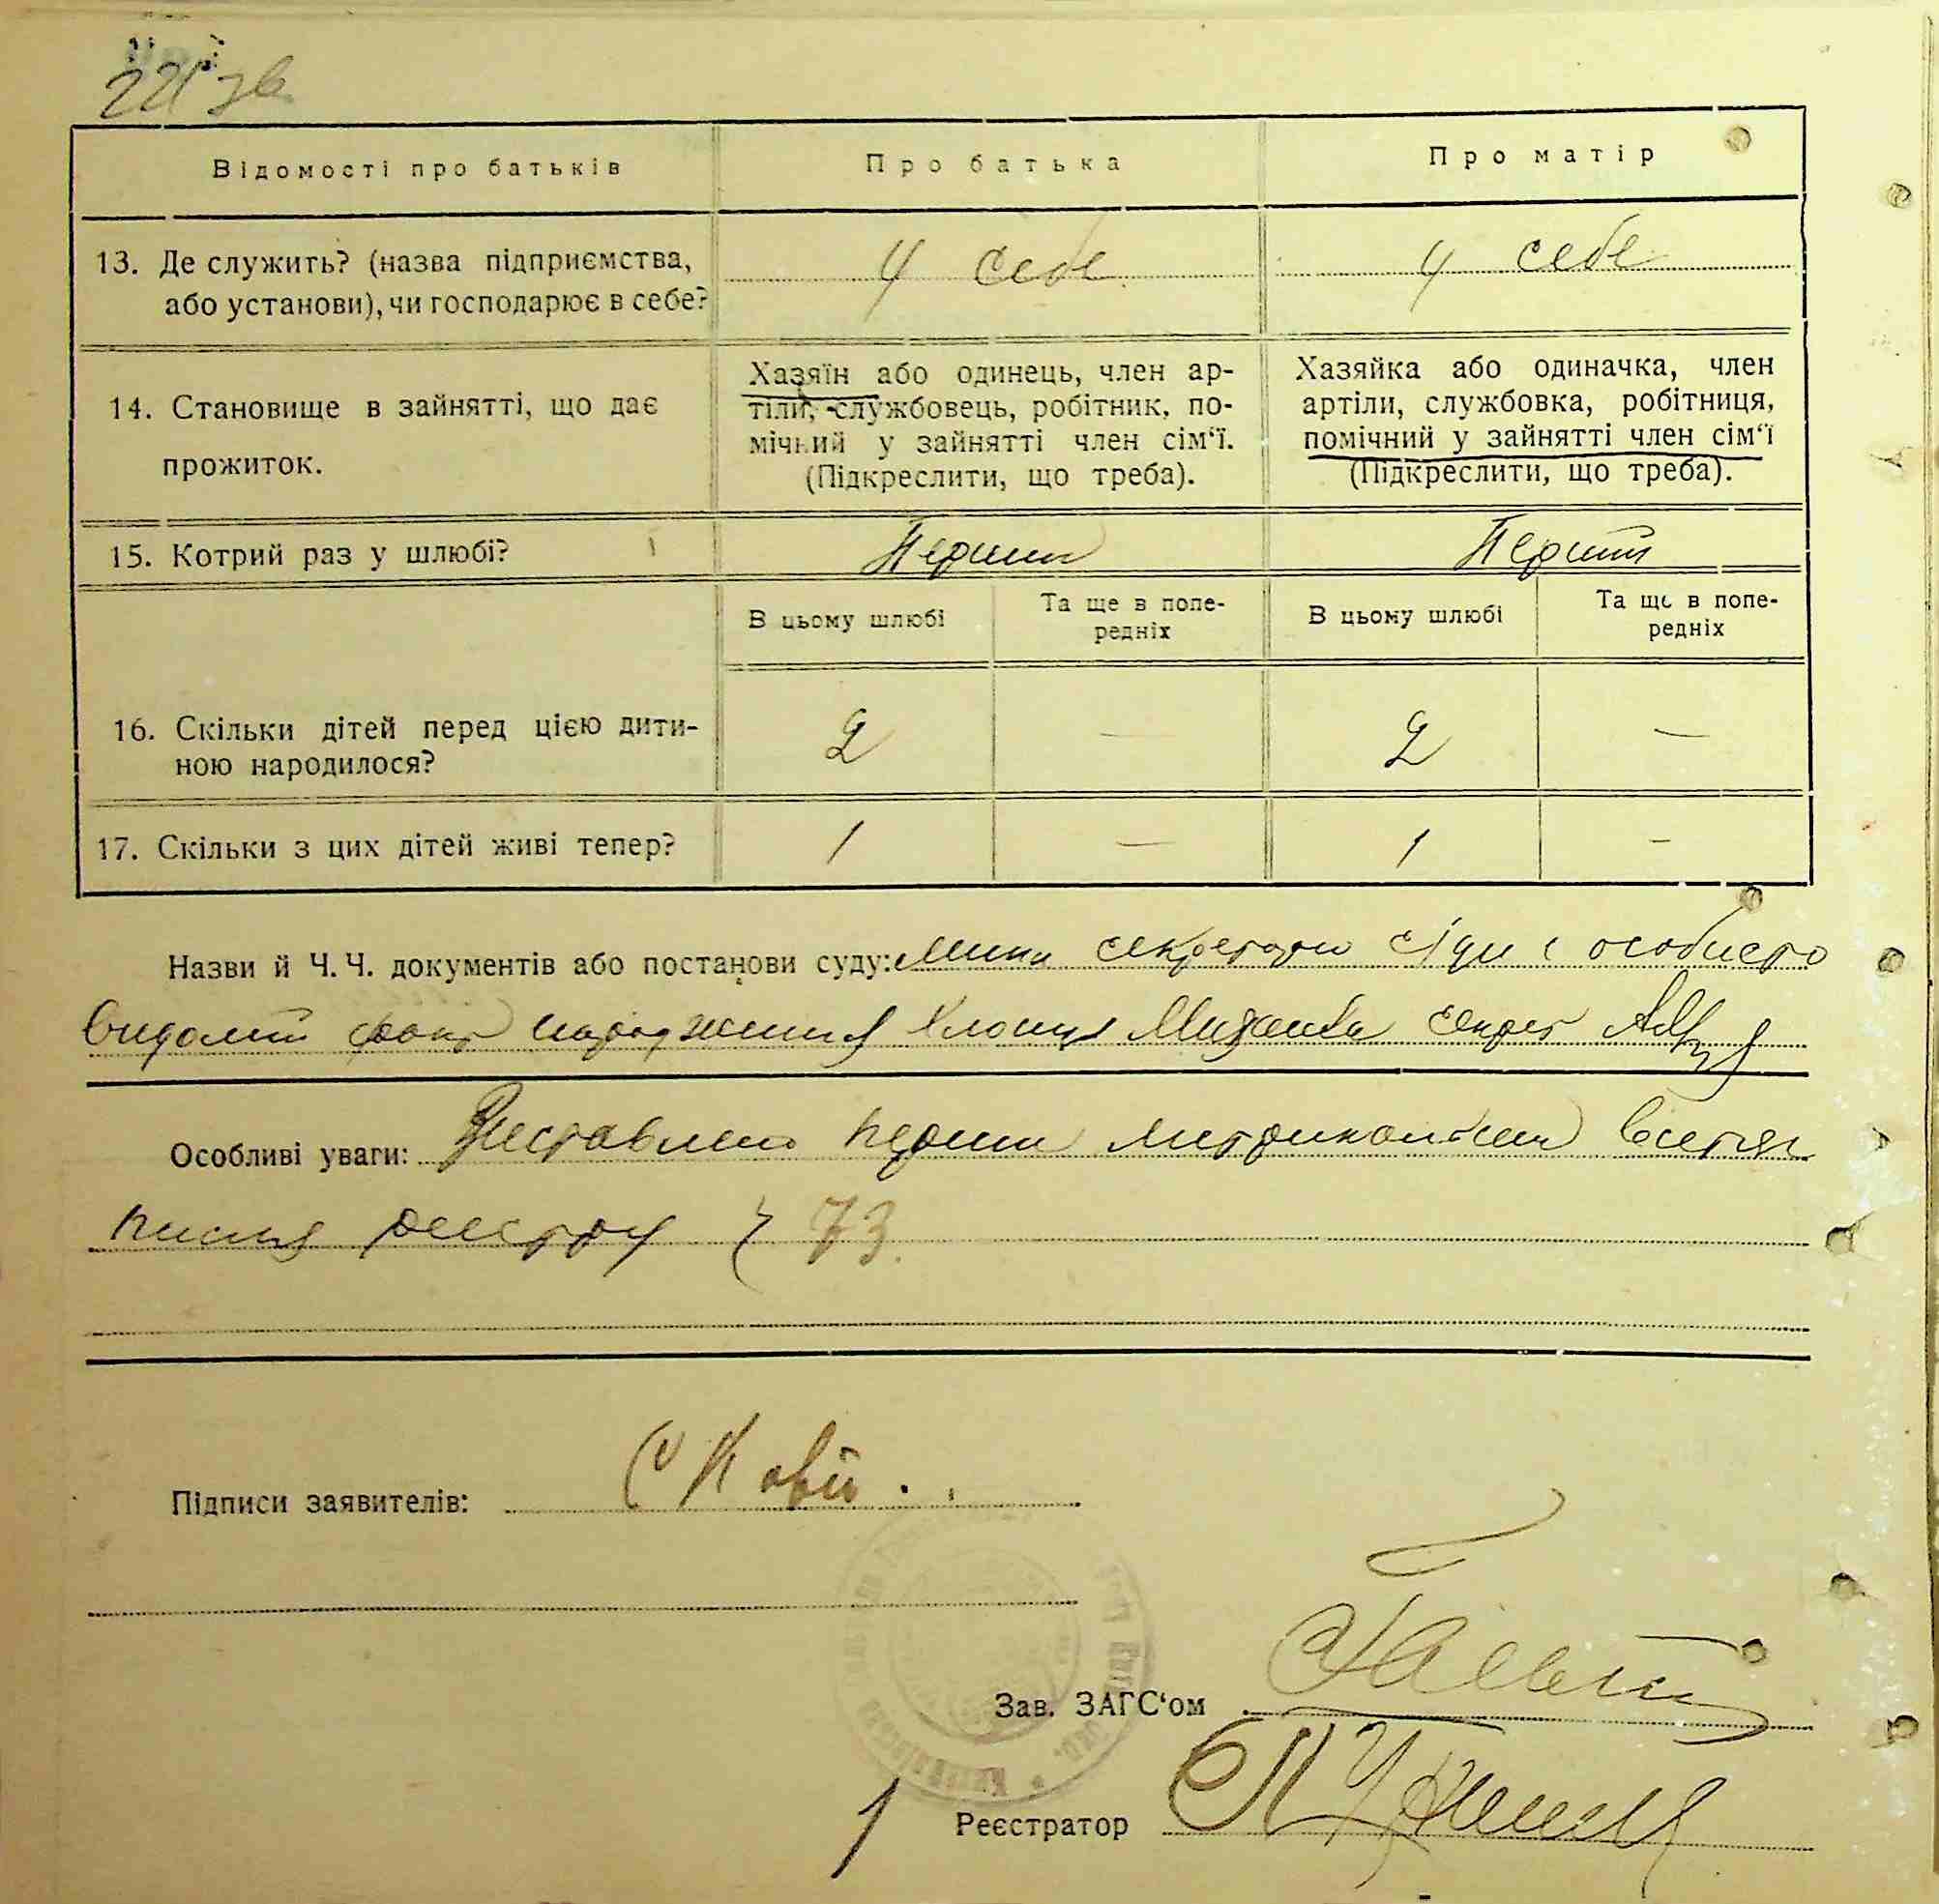 221 зв
Відомості про батьків
Про батька
Про матір
13. Де служить? (назва підприємства,
або установи), чи господарює в себе?
У себе
У себе
14. Становище в зайнятті, що дає
прожиток.
Хазяїн або одинець, член ар-
тіли, службовець, робітник, по-
мічний у зайнятті член сім‘ї.
(Підкреслити, що треба).
Хазяйка або одиначка, член
артіли, службовка, робітниця,
помічний у зайнятті член сім‘ї
(Підкреслити, що треба).
15. Котрий раз у шлюбі?
Перший
Перший
В цьому шлюбі
Та ще в попе-
редніх
В цьому шлюбі
Та ще в попе-
редніх
16. Скільки дітей перед цією дити-
ною народилося?
2
—
2
—
17. Скільки з цих дітей живі тепер?
1
—
1
—
Назви й Ч. Ч. документів або постанови суду: Мини секретарю с/ди є особисто
видомий факт народження хлопця Михайла секрет
Особливі уваги: Виставлено перший витяг
писля реєстру ч 73.
Підписи заявителів:
Зав. ЗАГС‘ом
Реєстратор
1